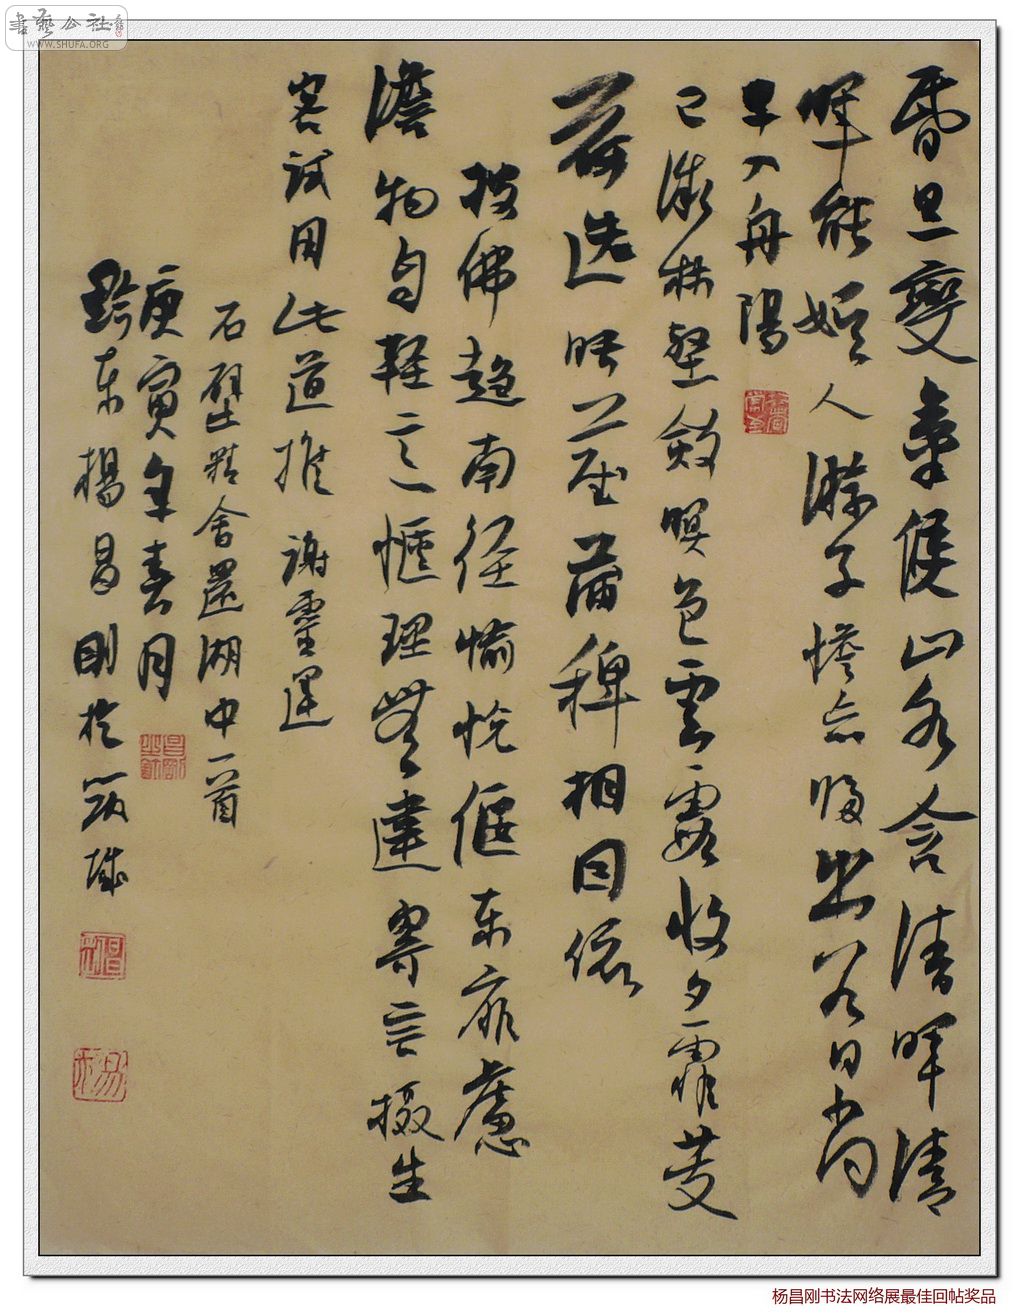 書藝公社
WWW.SHUFA.ORG
昏旦變氣候山水含清暉清
暉能娱人游子憺忘歸出谷日尚
早入舟陽
已微林壑斂暝色雲霞收夕霏芰
荷迭映蔚蒲稗相因依
披拂趨南徑愉悦偃東扉慮
澹物自輕意愜理無違寄言摄生
客試用此道推 謝靈運
石壁精舍還湖中一首
庚寅年春月
黔東楊昌剛於筑城
杨昌刚书法网络展最佳回帖奖品